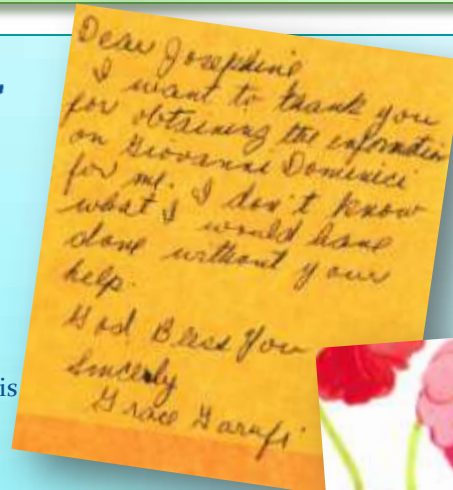 Dear Josephine
I want to thank you
for obtaining the information
on Giovanni Domenici
for me. I don't know
what I would have
done without your
help.
God Bless You
Sincerly
Grace Garufi
is